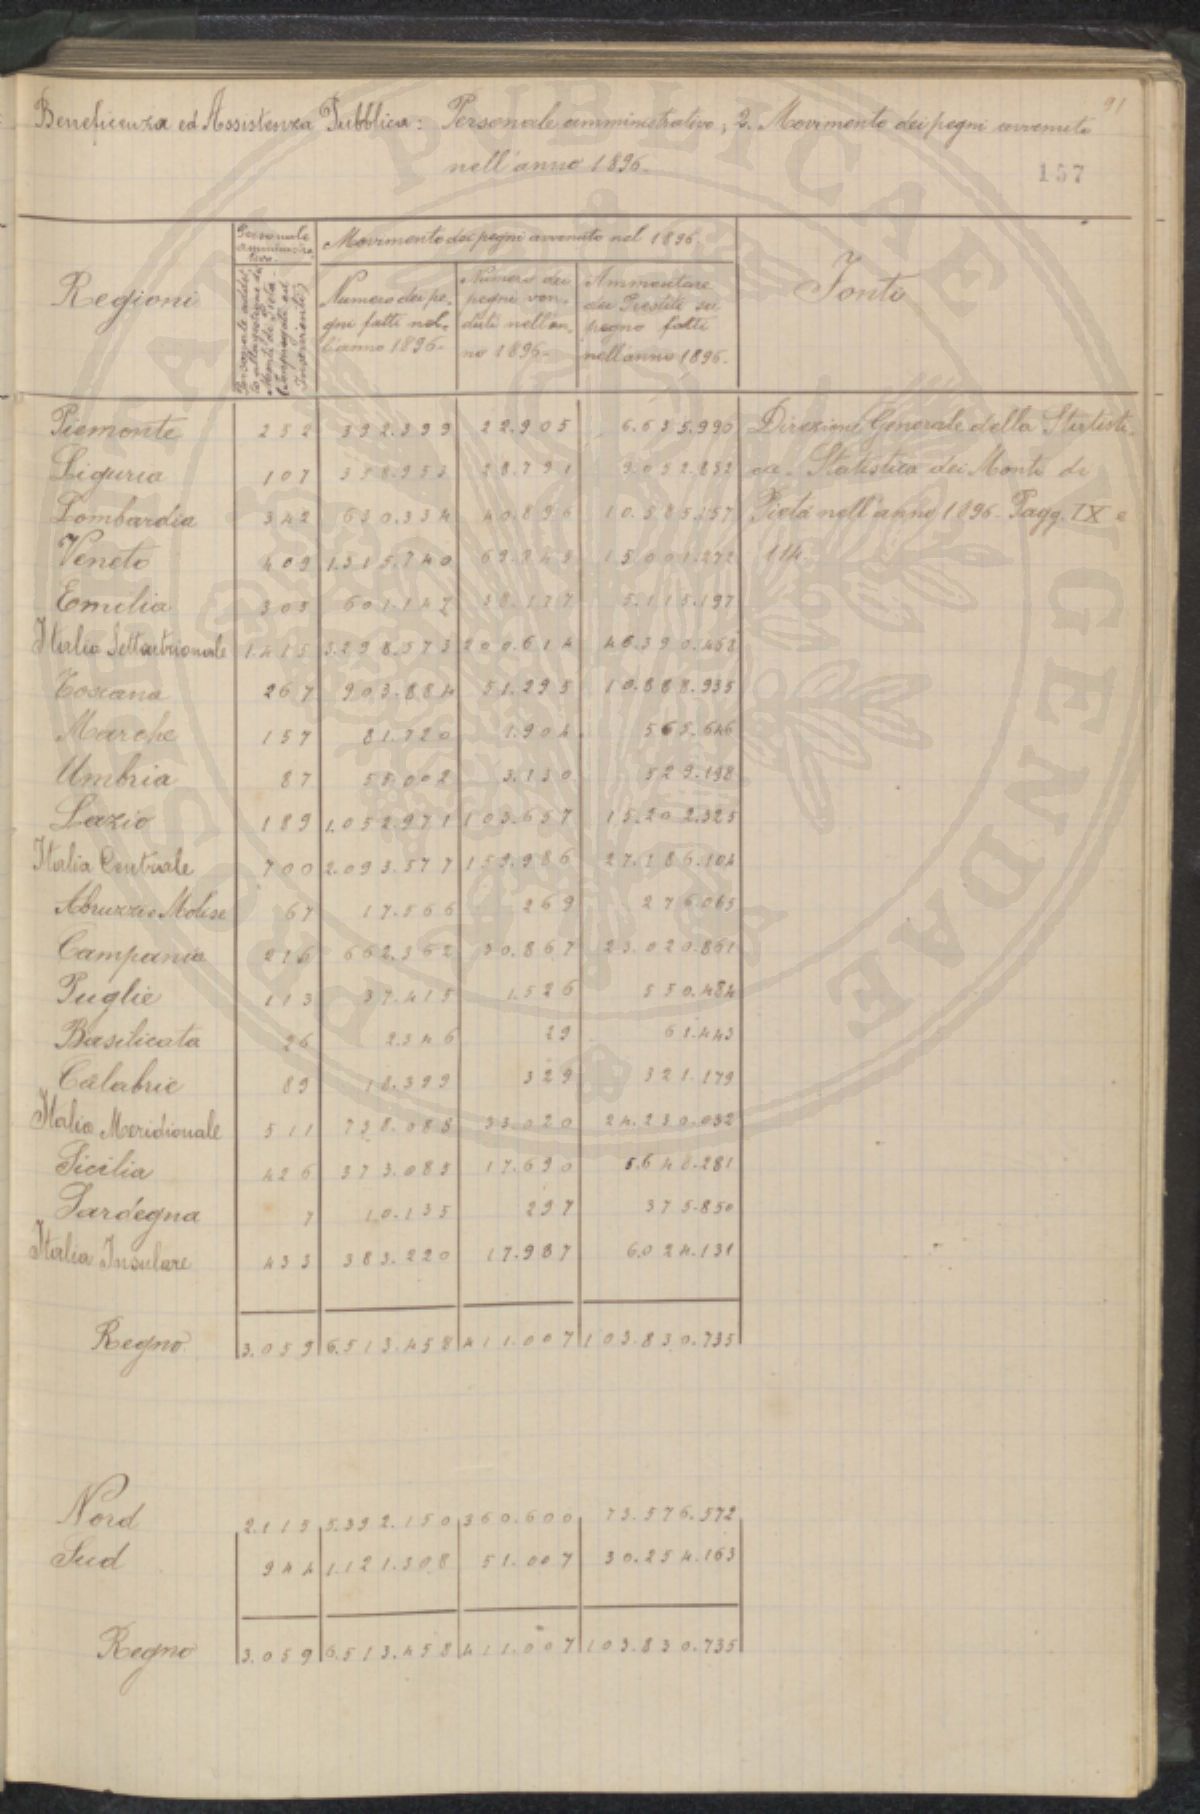 91
Beneficenza ed Assistenza Pubblica: Personale amministrativo; 2. Movimento dei pegni avvenuto
nell'anno 1896.
157
Regioni
Personale amministrativo.
Movimento dei pegni avvenuto nel 1896.
Fonti
Numero dei pe-
gni fatti nel-
l'anno 1896.
Numero dei
pegni ven-
duti nell'an-
no 1896.
Ammontare
dei Prestiti su
pegno fatti
nell'anno 1896.
Piemonte 252 392.399 22.905 6.635.990 Direzione Generale della Statisti-
Liguria 107 358.953 28.791 9.052.852 ca. Statistica dei Monti di
Lombardia 342 630.334 40.896 10.585.157 Pietà nell'anno 1896. Pagg. IX e
Veneto 409 1.315.740 69.849 15.001.272 114.
Emilia 305 601.147 38.177 5.115.197
Italia Settentrionale 1.415 3.298.573 200.614 46.390.468
Toscana 267 903.884 51.295 10.888.935
Marche 157 81.720 1.904 565.646
Umbria 87 55.002 3.130 529.198
Lazio 189 1.052.971 103.657 15.202.325
Italia Centrale 700 2.093.577 159.986 27.186.104
Abruzzi e Molise 67 17.566 269 276.065
Campania 216 662.362 30.867 23.020.861
Puglie 113 37.415 1.526 550.484
Basilicata 26 2.346 29 61.443
Calabrie 89 18.399 329 321.179
Italia Meridionale 511 738.088 33.020 24.230.032
Sicilia 426 373.085 17.690 5.648.281
Sardegna 7 10.135 297 375.850
Italia Insulare 433 383.220 17.987 6.024.131
Regno 3.059 6.513.458 411.007 103.830.735
Nord 2.115 5.392.150 360.600 73.576.572
Sud 944 1.121.308 51.007 30.254.163
Regno 3.059 6.513.458 411.007 103.830.735